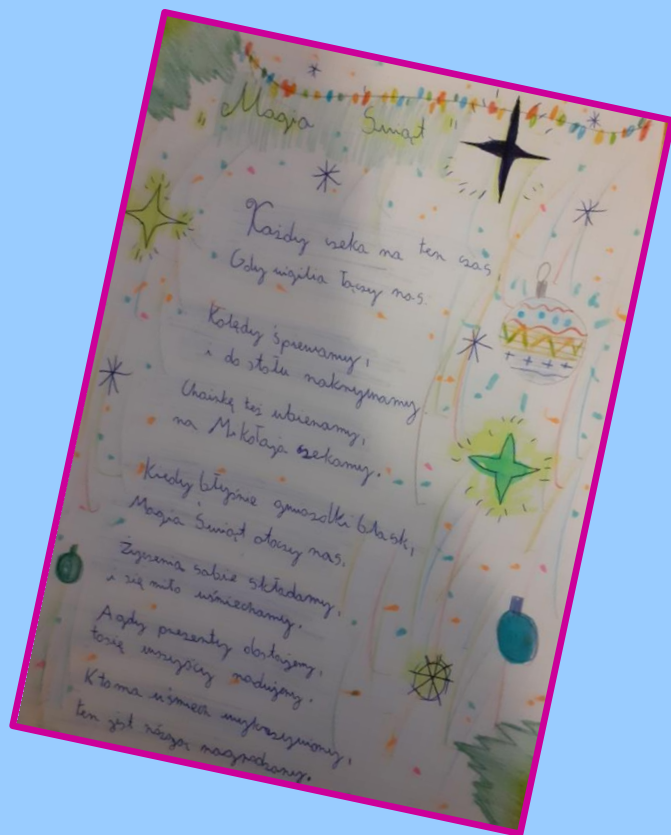 "Magia Świąt"
Każdy czeka na ten czas,
Gdy wigilia łączy nas.
Kolędy śpiewamy,
i do stołu nakrywamy.
Choinkę też ubieramy,
na Mikołaja czekamy.
Kiedy błyśnie gwiazdki blask,
Magia Świąt otoczy nas.
Życzenia sobie składamy,
i się miło uśmiechamy.
A gdy prezenty dostajemy,
to się wszyscy radujemy.
Kto ma uśmiech
ten jest nagradzany.